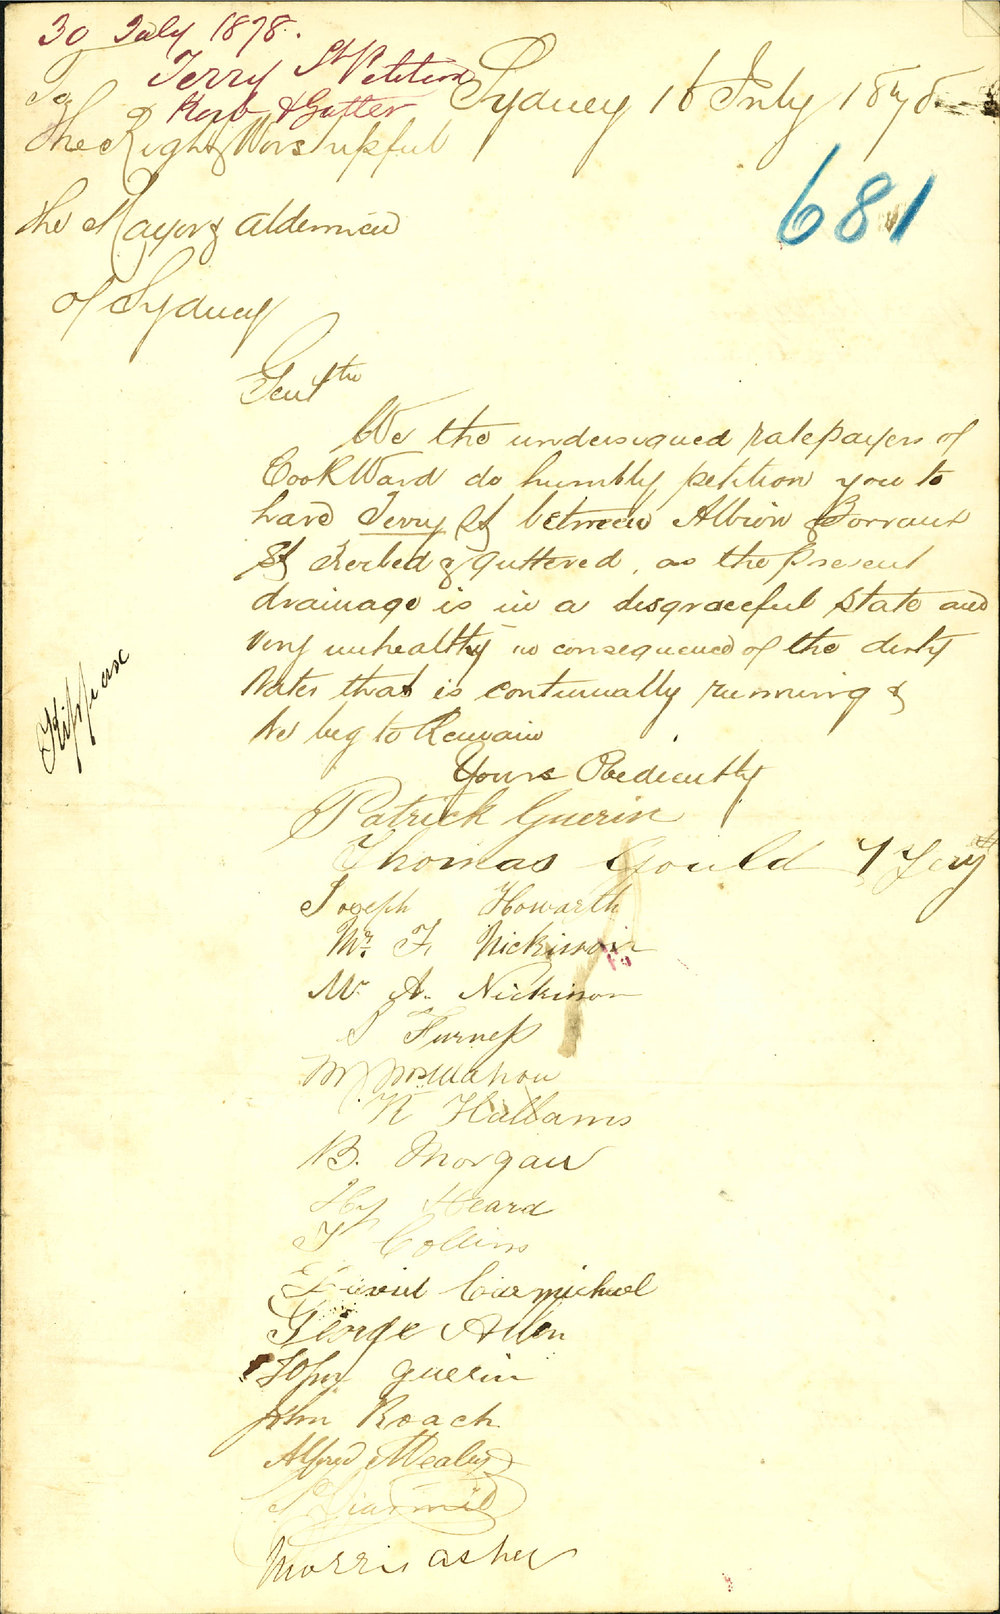 30 July 1878.
Terry St Petition
Kerb & Gutter
Sydney 16 July 1878
681
To
The Right Worshipful
the Mayor & Aldermen
of Sydney
Gentlm
We the undersigned ratepayers of
Cook Ward do humbly petition you to
have Terry St between Albion &
St Kerbed & guttered, as the present
drainage is in a disgraceful state and
very unhealthy in consequence of the dirty
Water that is continually running &
We beg to Remain
Yours Obediently
Kippax
Patrick Guerin
Thomas Gould 7 Terry St
Joseph Howarth
Mr. F. Nickinson
Mr A. Nickinson
S Furness
M McMahon
Hallams
B. Morgan
Hy Heard
T Collins
David Carmichael
George Allen
John guerin
John Roach
Alfred Wealey
Morris asher